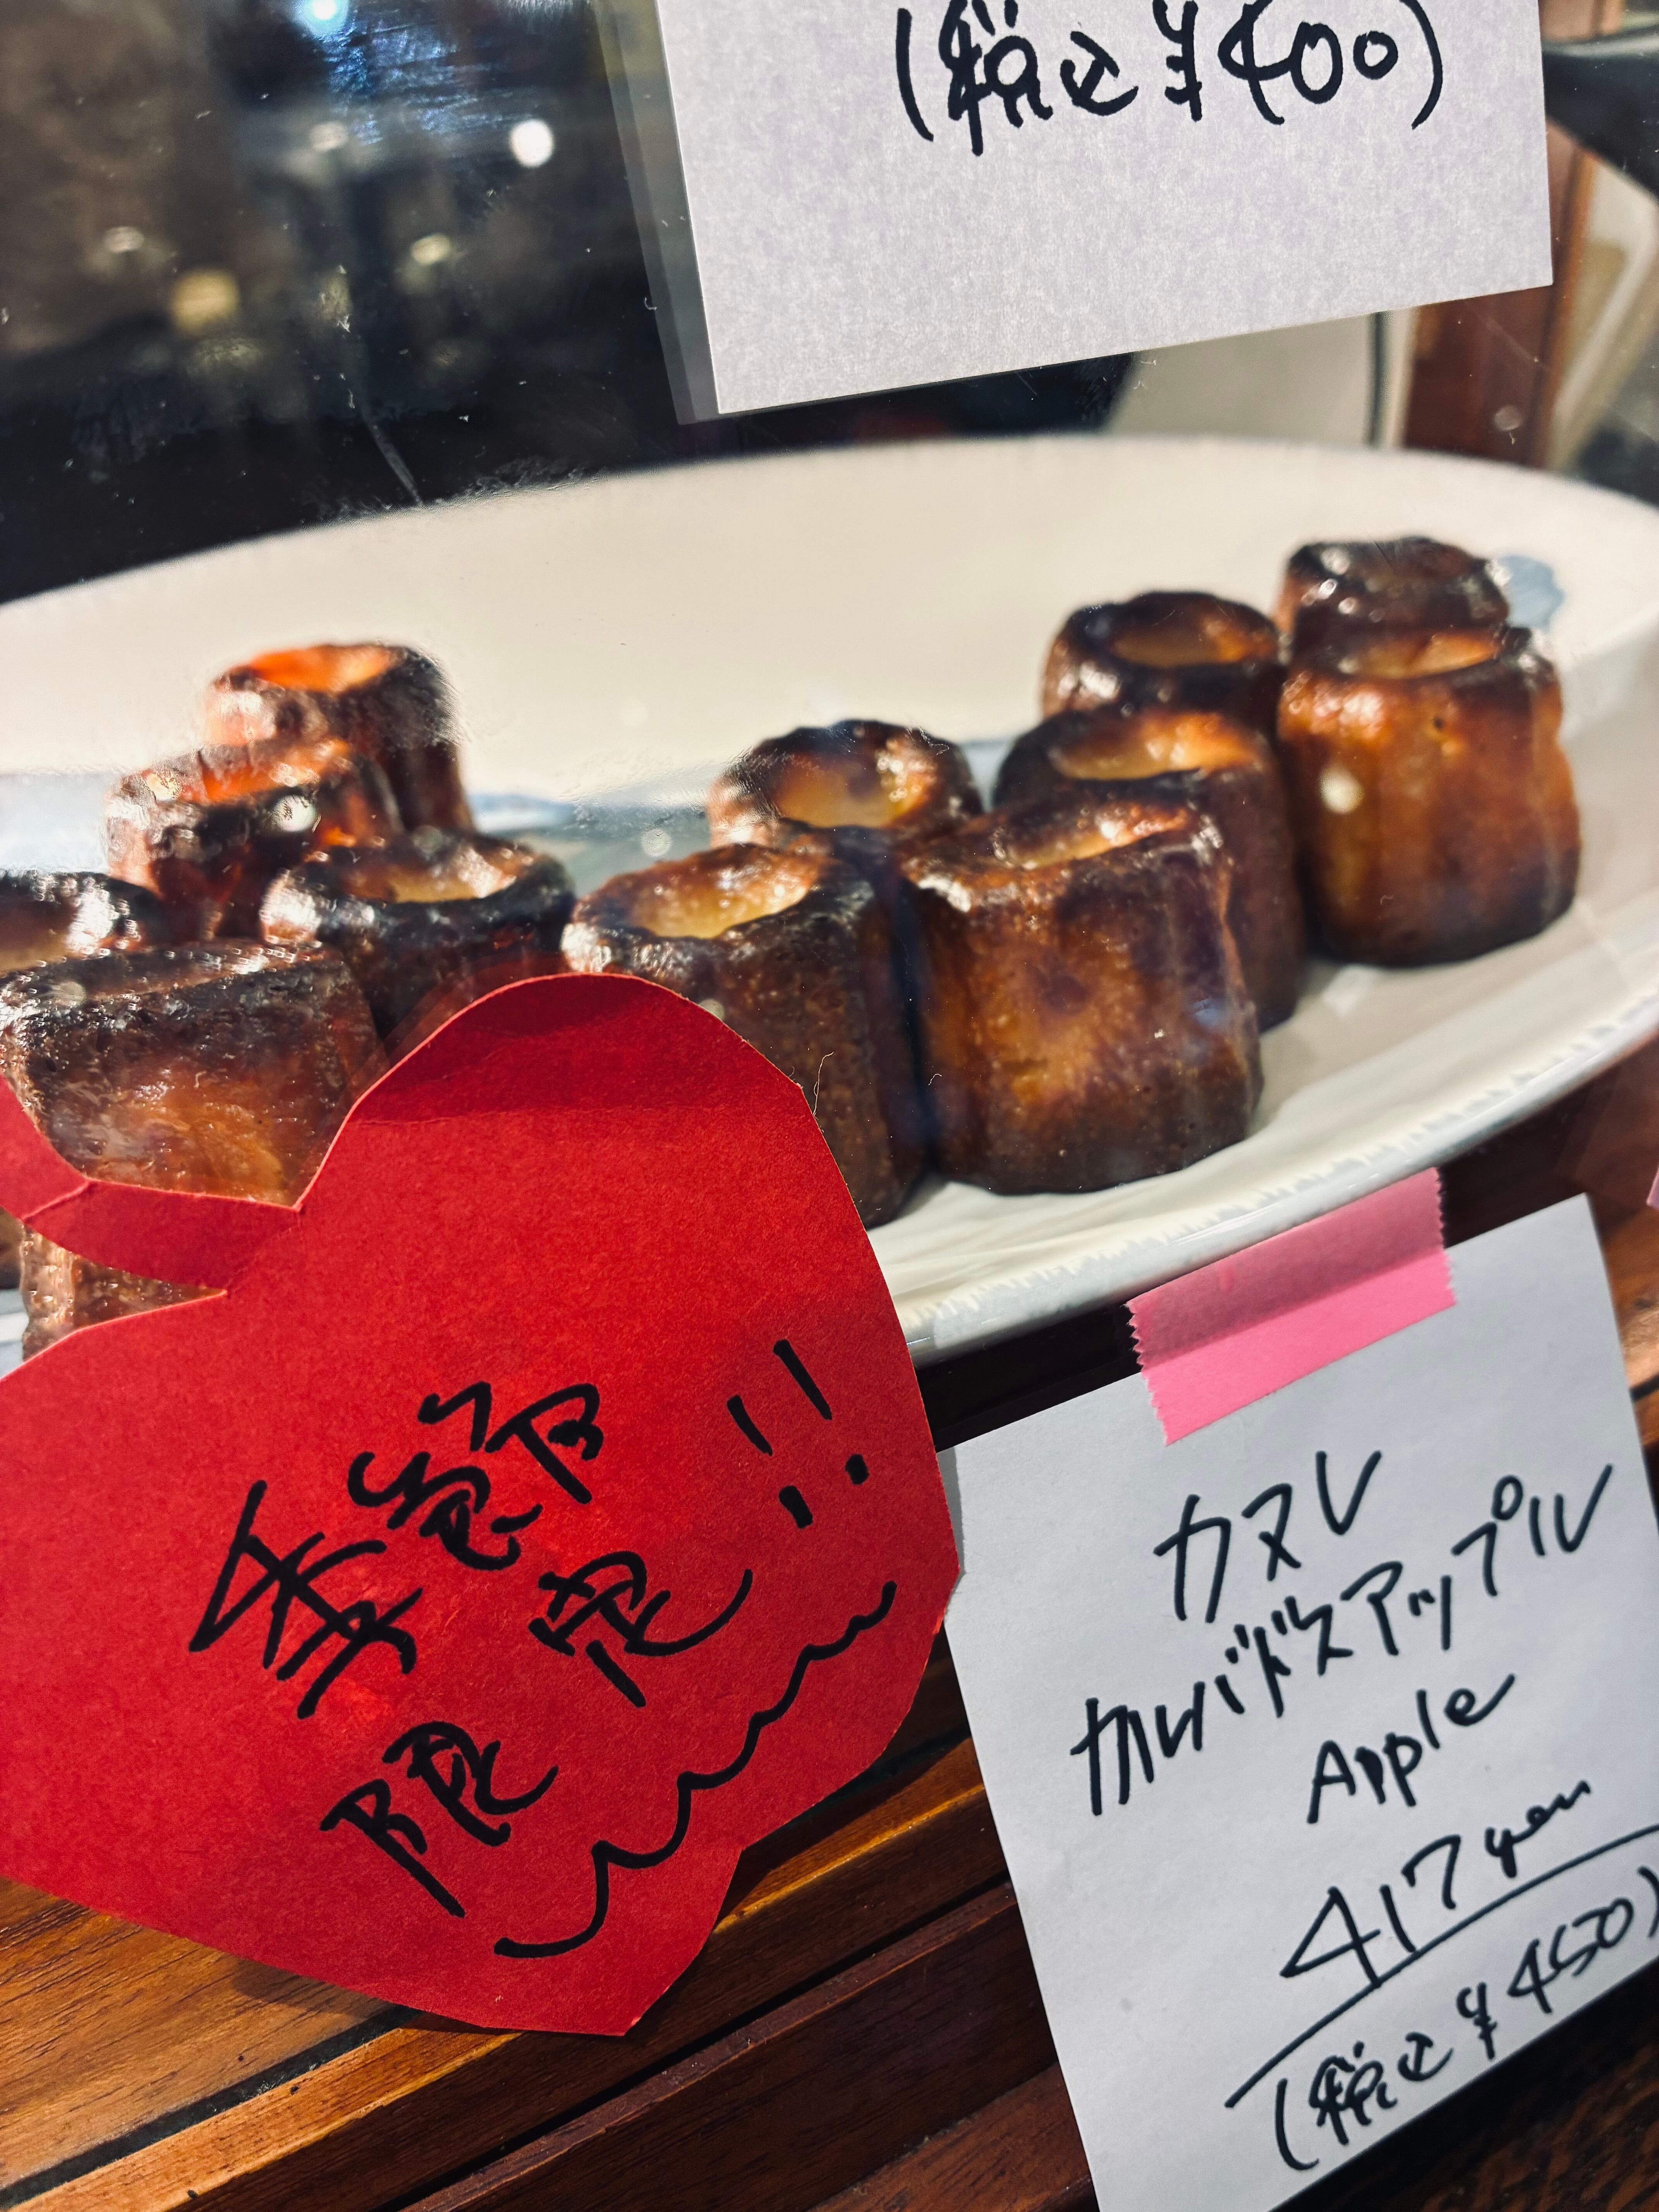 (税込¥400)
季節
限定!!
カヌレ
カルバドスアップル
Apple
417yen
(税込¥450)